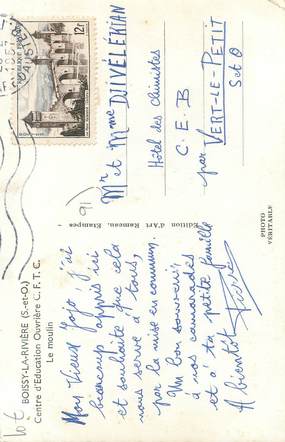 BOISSY-LA-RIVIÈRE (S.-et-O.)
Centre d'Education Ouvrière C. F. T. C.
Le moulin
Mon Vieux Jojo, j'ai
beaucoup appris ici
et souhaite que cela
nous serve à tous,
par la mise en commun.
Un bon souvenir,
à nos camarades
et à ta petite famille
A bientôt
Pierre
Edition d'Art Rameau, Etampes
PHOTO
VÉRITABLE
12F
Mr et Mme DJIVÉLÉKIAN
Hôtel des Chimistes
C. E. B
par VERT-LE-PETIT
S et O
91